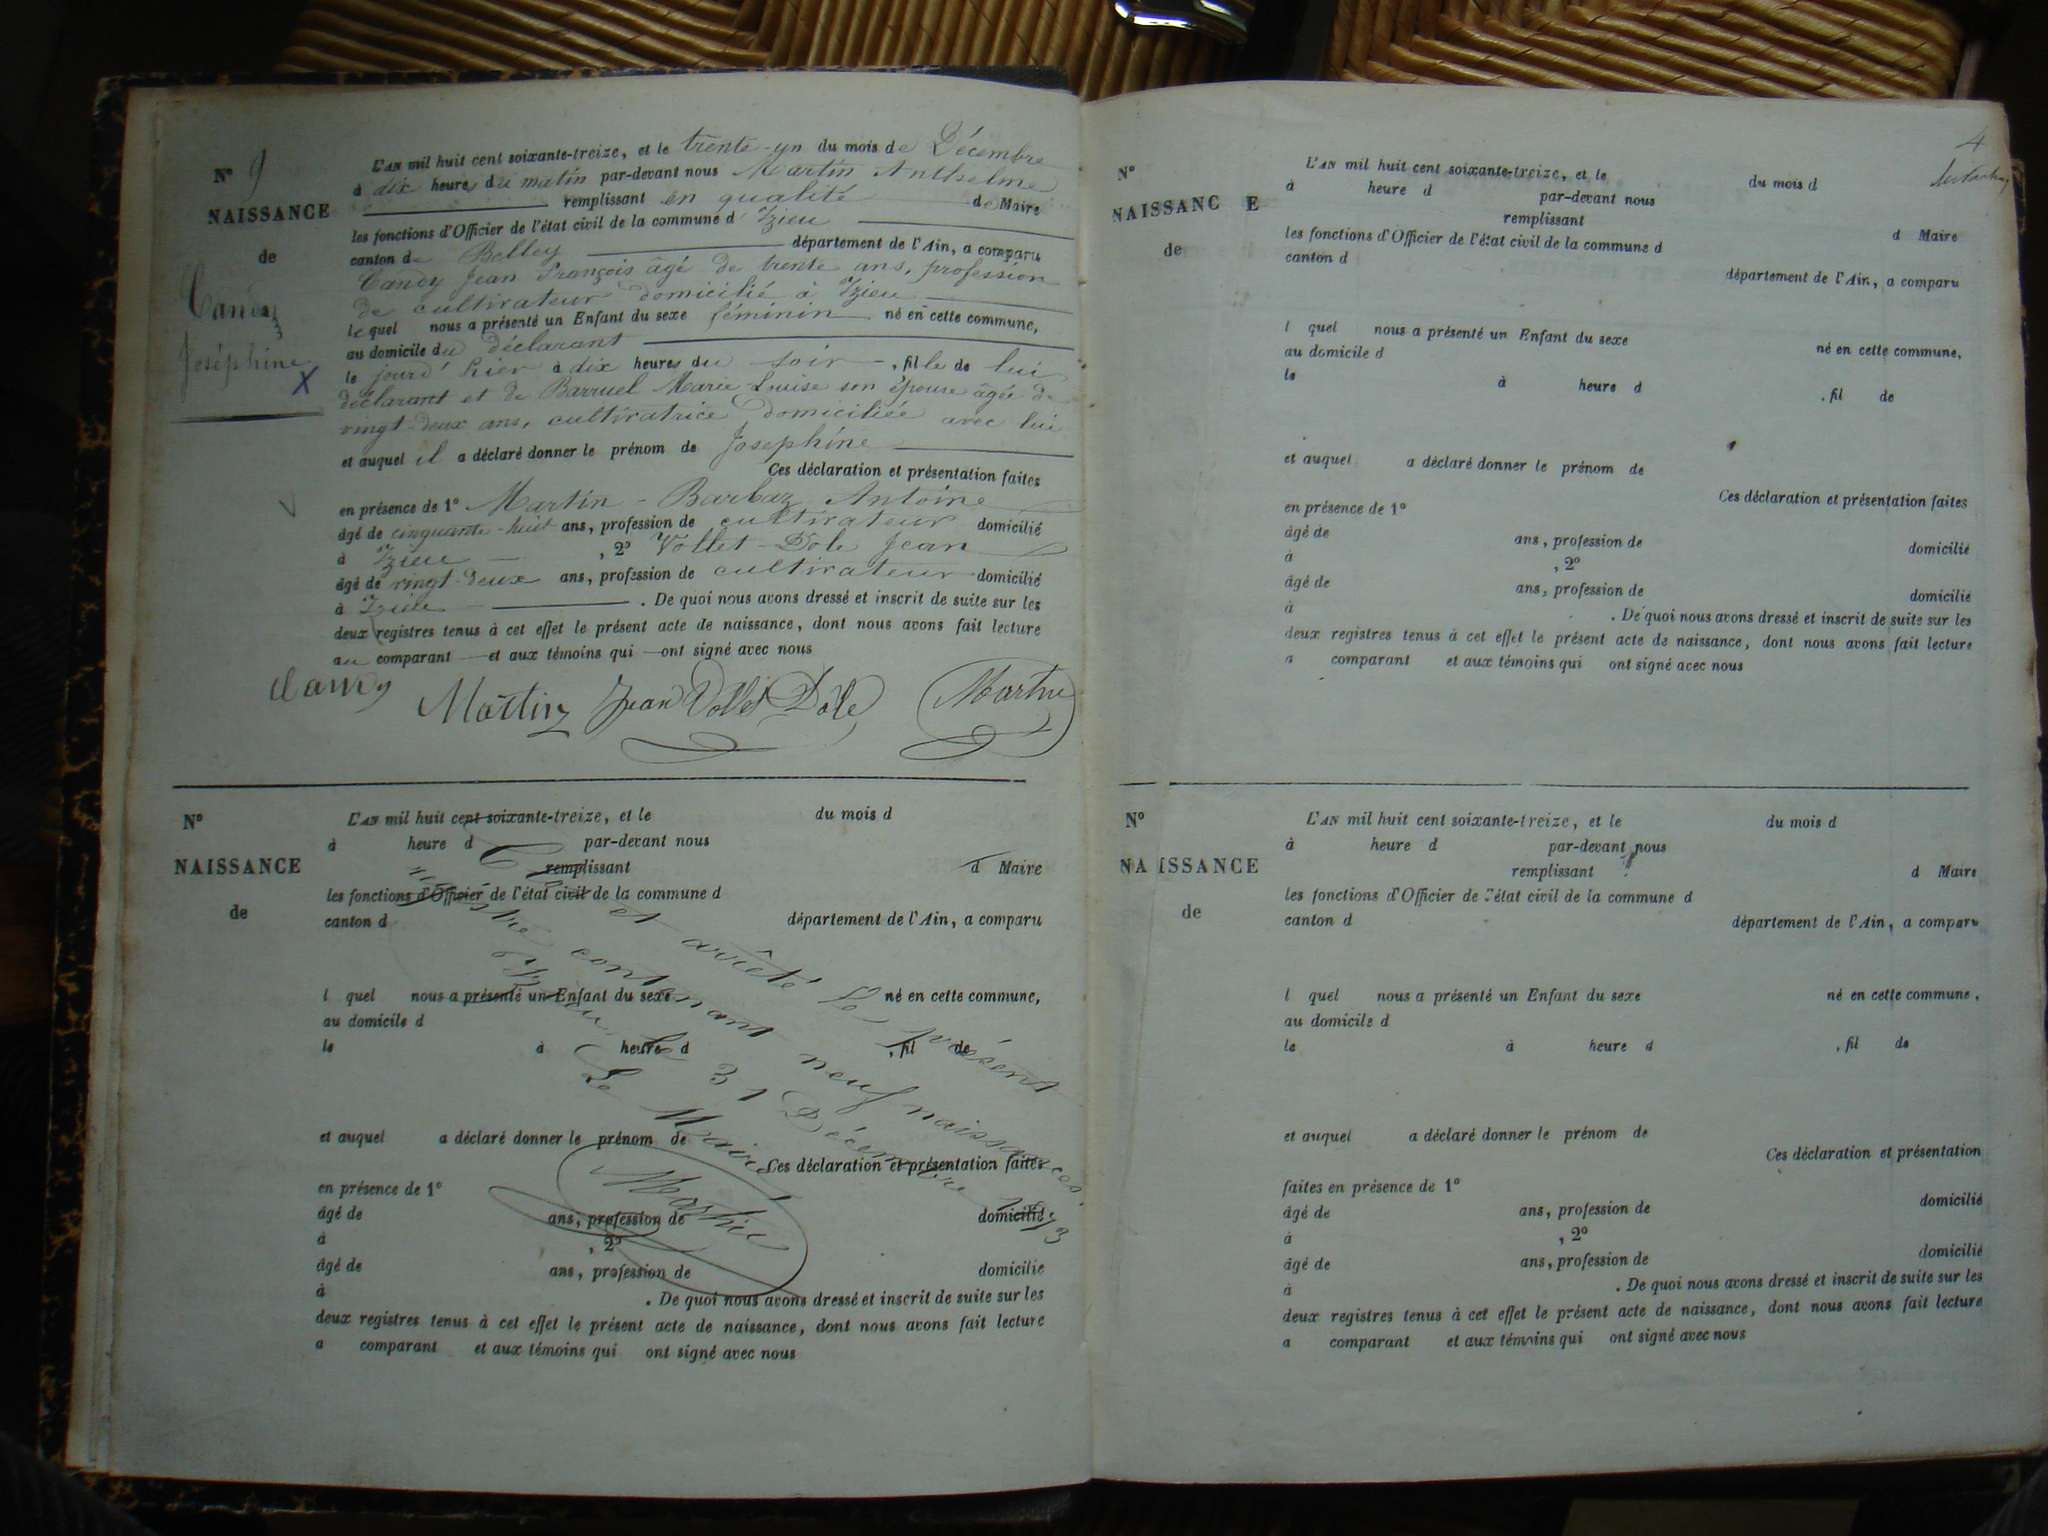 N° 9
NAISSANCE
de
Candy
Joséphine
X
L'AN mil huit cent soixante-treize, et le trente-un du mois de Décembre
à dix heures du matin par-devant nous Martin Anthelme
remplissant en qualité de Maire
les fonctions d'Officier de l'état civil de la commune d'Izieu
canton de Belley département de l'Ain, a comparu
Candy Jean François âgé de trente ans, profession
de cultivateur domicilié à Izieu
lequel nous a présenté un Enfant du sexe féminin né en cette commune,
au domicile du déclarant
le jourd'hier à dix heures du soir, fille de lui
déclarant et de Barruel Marie Louise son épouse âgée de
vingt-deux ans, cultivatrice domiciliée avec lui
et auquel il a déclaré donner le prénom de Josephine
Ces déclaration et présentation faites
en présence de 1° Martin-Barbaz Antoine
âgé de cinquante-huit ans, profession de cultivateur domicilié
à Izieu, 2° Vollet-Dole Jean
âgé de vingt-deux ans, profession de cultivateur domicilié
à Izieu. De quoi nous avons dressé et inscrit de suite sur les
deux registres tenus à cet effet le présent acte de naissance, dont nous avons fait lecture
au comparant et aux témoins qui ont signé avec nous
Candy Martin Jean Vollet Dole Martin
N°
NAISSANCE
de
L'AN mil huit cent soixante-treize, et le du mois d
à heure d par-devant nous
remplissant d Maire
les fonctions d'Officier de l'état civil de la commune d
canton d département de l'Ain, a comparu
l quel nous a présenté un Enfant du sexe né en cette commune,
au domicile d
le à heure d , fil de
et auquel a déclaré donner le prénom de
Ces déclaration et présentation faites
en présence de 1°
âgé de ans, profession de domicilié
à , 2°
âgé de ans, profession de domicilié
à . De quoi nous avons dressé et inscrit de suite sur les
deux registres tenus à cet effet le présent acte de naissance, dont nous avons fait lecture
a comparant et aux témoins qui ont signé avec nous
et arrêté le présent
registre contenant neuf naissances.
Izieu le 31 Décembre 1873
Le Maire
Martin
4
N°
NAISSANCE
de
L'AN mil huit cent soixante-treize, et le du mois d
à heure d par-devant nous
remplissant d Maire
les fonctions d'Officier de l'état civil de la commune d
canton d département de l'Ain, a comparu
l quel nous a présenté un Enfant du sexe né en cette commune,
au domicile d
le à heure d , fil de
et auquel a déclaré donner le prénom de
Ces déclaration et présentation faites
en présence de 1°
âgé de ans, profession de domicilié
à , 2°
âgé de ans, profession de domicilié
à . De quoi nous avons dressé et inscrit de suite sur les
deux registres tenus à cet effet le présent acte de naissance, dont nous avons fait lecture
a comparant et aux témoins qui ont signé avec nous
N°
NAISSANCE
de
L'AN mil huit cent soixante-treize, et le du mois d
à heure d par-devant nous
remplissant d Maire
les fonctions d'Officier de l'état civil de la commune d
canton d département de l'Ain, a comparu
l quel nous a présenté un Enfant du sexe né en cette commune,
au domicile d
le à heure d , fil de
et auquel a déclaré donner le prénom de
Ces déclaration et présentation
faites en présence de 1°
âgé de ans, profession de domicilié
à , 2°
âgé de ans, profession de domicilié
à . De quoi nous avons dressé et inscrit de suite sur les
deux registres tenus à cet effet le présent acte de naissance, dont nous avons fait lecture
a comparant et aux témoins qui ont signé avec nous